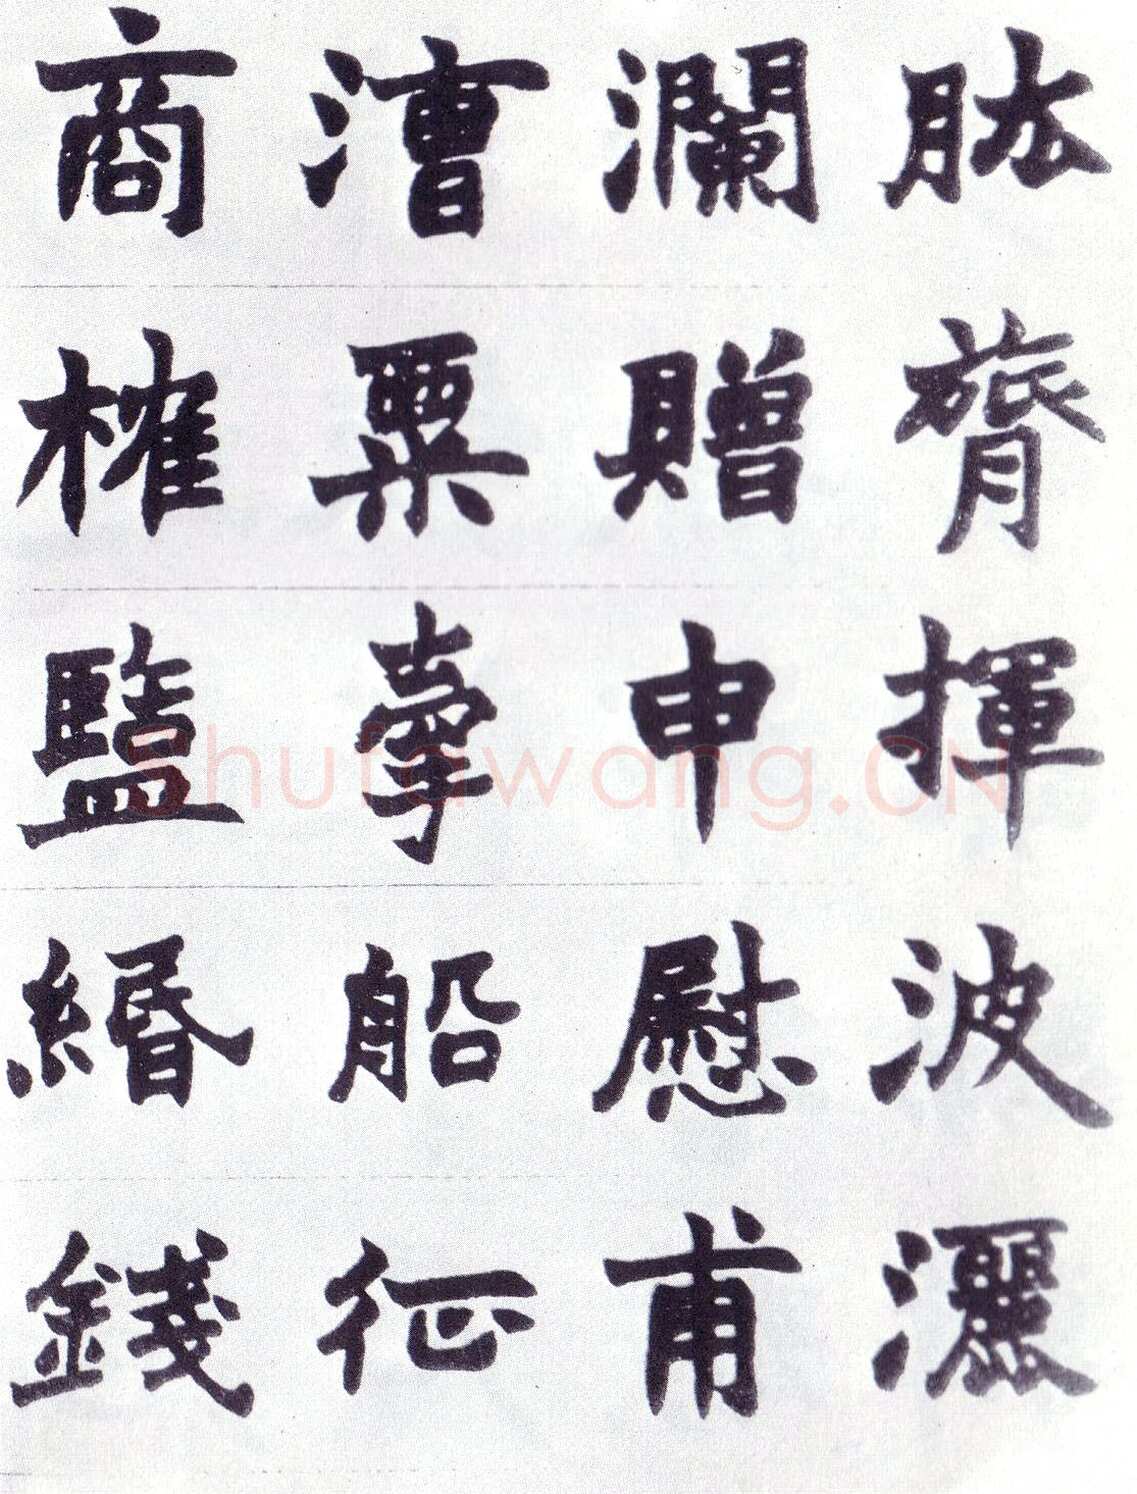 肱膂揮波灑
瀾贈申慰甫
漕粟牽船征
商榷鹽緡錢
Shufawang.CN